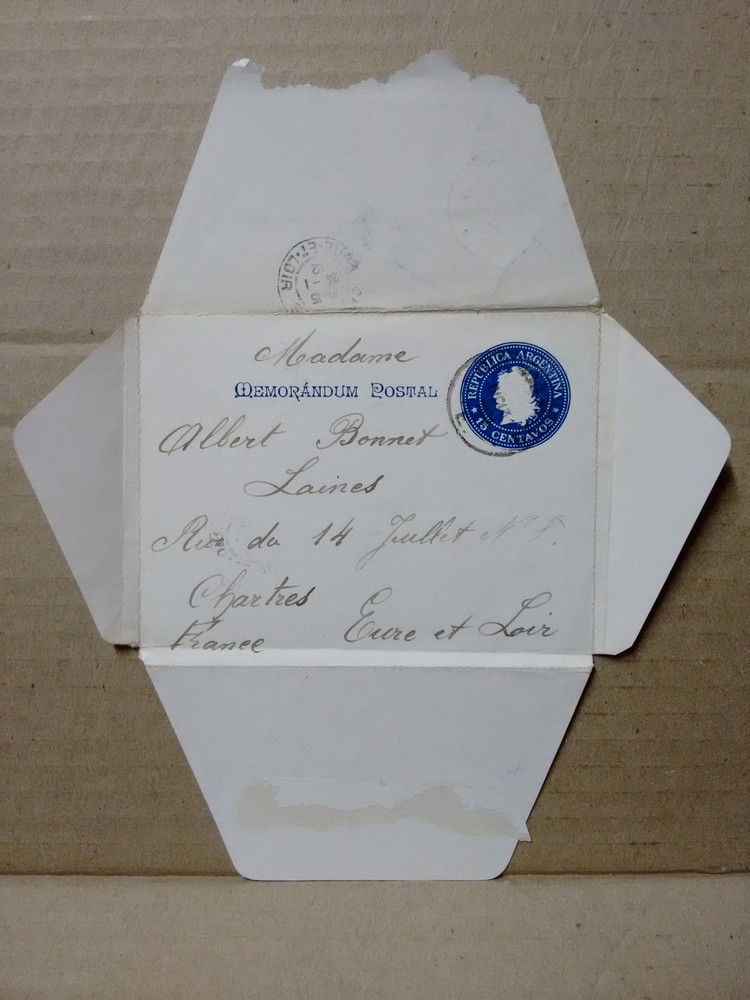 EURE-ET-LOIR
Madame
MEMORÁNDUM POSTAL
REPUBLICA ARGENTINA
15 CENTAVOS
Albert Bonnet
Laines
Rue du 14 Juillet N° 8
Chartres
Eure et Loir
France